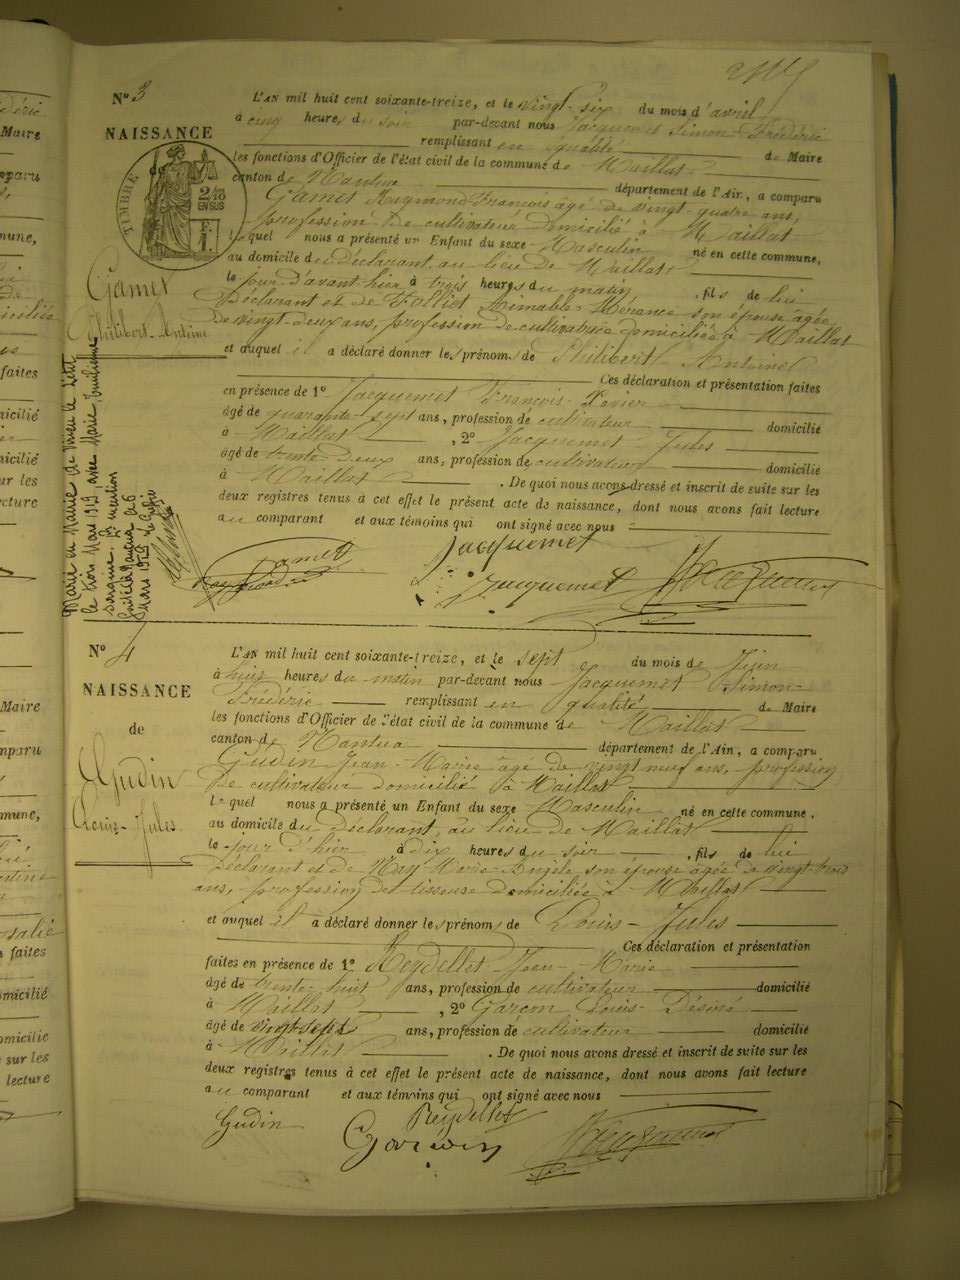 N° 3
NAISSANCE
TIMBRE
2/10 EN SUS
Gamet
Philibert-Antoine
Marié en Mairie de Vieu le
le trois Mars 1919 avec Marie Emilienne
mention
mars 1919 le Greffier
L'AN mil huit cent soixante-treize, et le vingt-six du mois d'avril
à cinq heures du soir par-devant nous Jacquemet Simon-Frédéric
remplissant en qualité de Maire
les fonctions d'Officier de l'état civil de la commune de Maillat
canton de Nantua département de l'Ain, a comparu
Gamet Raymond François âgé de vingt-quatre ans,
profession de cultivateur domicilié à Maillat
lequel nous a présenté un Enfant du sexe Masculin né en cette commune,
au domicile du Déclarant, au lieu de Maillat
le jour d'avant hier à trois heures du matin, fils de lui
Déclarant et de Folliet Aimable son épouse âgée
de vingt-deux ans, profession de cultivatrice domiciliée à Maillat
et auquel il a déclaré donner les prénoms de Philibert Antoine
Ces déclaration et présentation faites
en présence de 1° Jacquemet François-Xavier
âgé de quarante-sept ans, profession de cultivateur domicilié
à Maillat, 2° Jacquemet Jules
âgé de trente-deux ans, profession de cultivateur domicilié
à Maillat. De quoi nous avons dressé et inscrit de suite sur les
deux registres tenus à cet effet le présent acte de naissance, dont nous avons fait lecture
au comparant et aux témoins qui ont signé avec nous
Gamet
Jacquemet
Jacquemet
Jacquemet
N° 4
NAISSANCE
de
Gudin
Louis-Jules
L'AN mil huit cent soixante-treize, et le sept du mois de Juin
à huit heures du matin par-devant nous Jacquemet Simon-
Frédéric remplissant en qualité de Maire
les fonctions d'Officier de l'état civil de la commune de Maillat
canton de Nantua département de l'Ain, a comparu
Gudin Jean-Marie âgé de vingt neuf ans, profession
de cultivateur domicilié à Maillat
lequel nous a présenté un Enfant du sexe Masculin né en cette commune,
au domicile du Déclarant, au lieu de Maillat
le jour d'hier à dix heures du soir, fils de lui
Déclarant et de May Marie-Angèle son épouse âgée de vingt-trois
ans, profession de tisseuse domiciliée à Maillat
et auquel il a déclaré donner les prénoms de Louis-Jules
Ces déclaration et présentation
faites en présence de 1° Reydellet Jean-Marie
âgé de trente-huit ans, profession de cultivateur domicilié
à Maillat, 2° Garçon Louis-Désiré
âgé de vingt sept ans, profession de cultivateur domicilié
à Maillat. De quoi nous avons dressé et inscrit de suite sur les
deux registres tenus à cet effet le présent acte de naissance, dont nous avons fait lecture
au comparant et aux témoins qui ont signé avec nous
Gudin
Reydellet
Garçon
Jacquemet